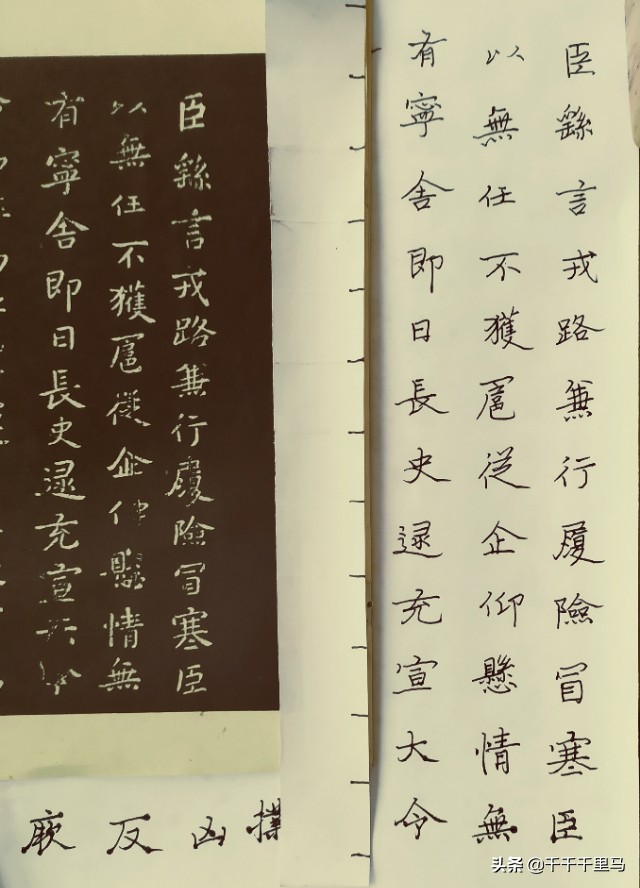 臣繇言戎路兼行履險冒塞臣
以無任不獲扈從企仰懸情無
有寧舍即日長史逯充宣大令
臣繇言戎路兼行履險冒塞臣
以無任不獲扈從企仰懸情無
有寧舍即日長史逯充宣
凶反厥
头条 @千千千里马